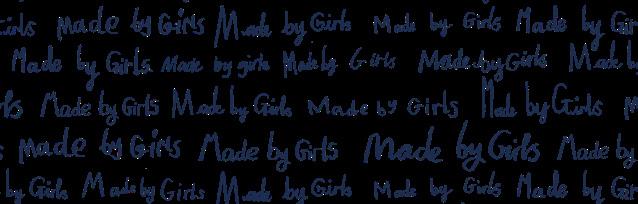 Girls Made by Girls Made by Girls Made by Girls Made by Gir
Made by Girls Made by girls Made by Girls Made by Girls Made b
ls Made by Girls Made by Girls Made by Girls Made by Girls
Made by Girls Made by Girls Made by Girls Made by
by Girls Made by Girls Made by Girls Made by Girls Made by Gir